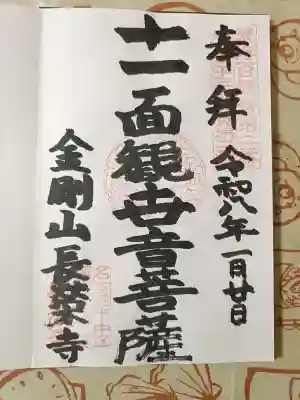 奉拜
令和八年一月廿日
十一面観世音菩薩
金剛山長榮寺